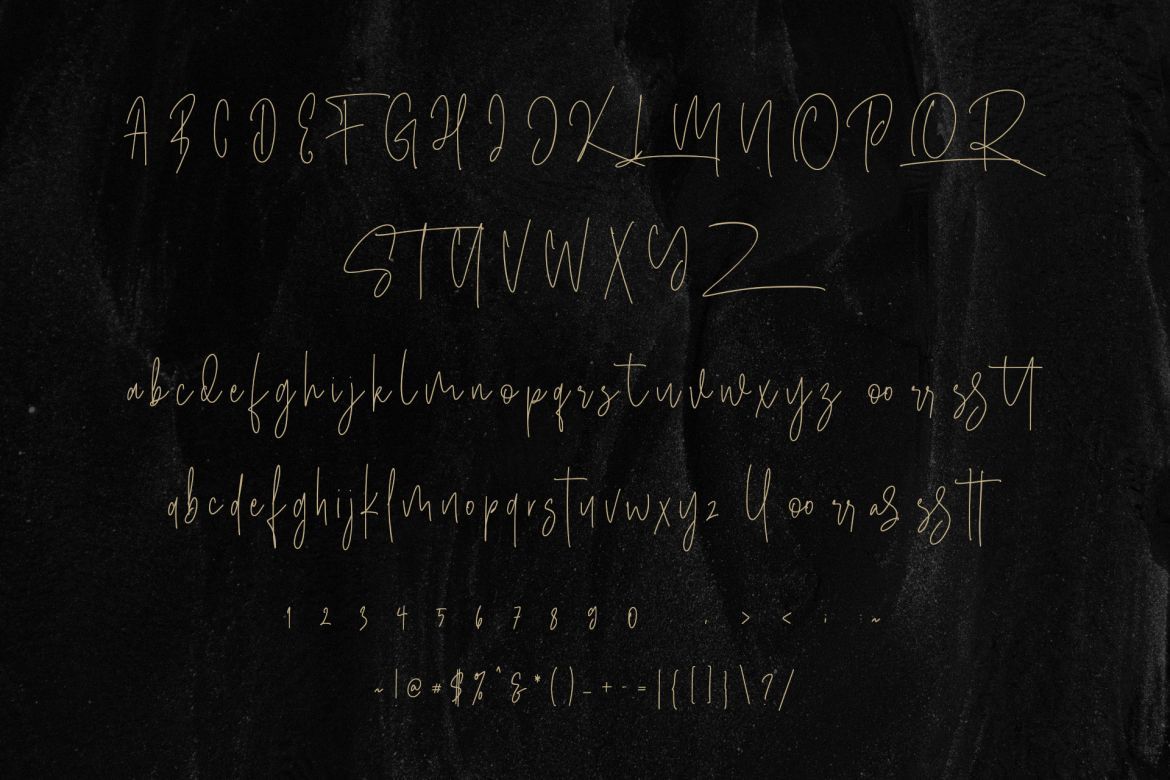 A B C D E F G H I J K L M N O P Q R
S T U V W X Y Z
a b c d e f g h i j k l m n o p q r s t u v w x y z oo rr ss tt
a b c d e f g h i j k l m n o p q r s t u v w x y z ll oo rr as ss tt
1 2 3 4 5 6 7 8 9 0 , > < : ~
~ | @ # $ % ^ & * ( ) _ + - = | { [ ] } \ ? /